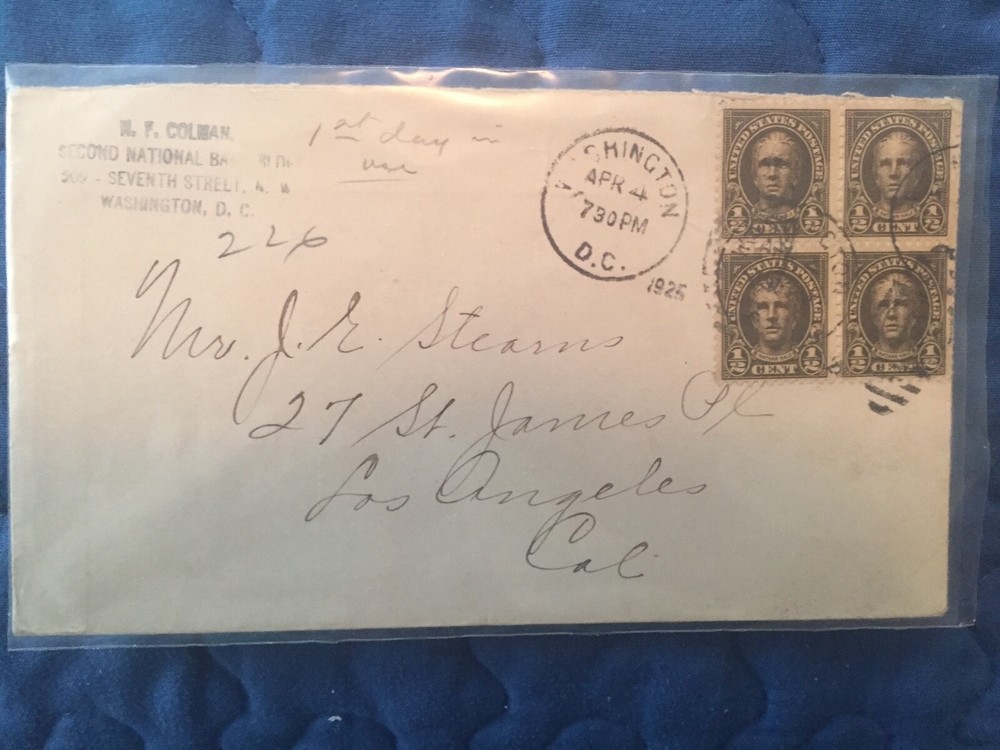 W. F. COLMAN,
SECOND NATIONAL
SEVENTH STREET, N. W
WASHINGTON, D. C.
1st day in
use
226
WASHINGTON
APR 4
730PM
D.C.
1925
UNITED STATES POSTAGE
1/2 CENT 1/2
UNITED STATES POSTAGE
1/2 CENT 1/2
UNITED STATES POSTAGE
NATHAN HALE
1/2 CENT 1/2
UNITED STATES POSTAGE
NATHAN HALE
1/2 CENT 1/2
Mr. J. E. Stearns
27 St. James Pl
Los Angeles
Cal